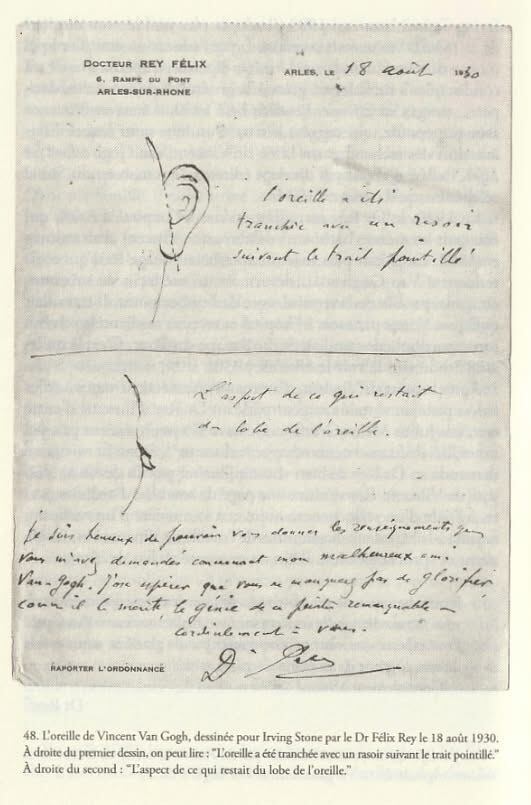 DOCTEUR REY FÉLIX
6, RAMPE DU PONT
ARLES-SUR-RHONE
ARLES, LE 18 août 1930
l'oreille a été
tranchée avec un rasoir
suivant le trait pointillé
L'aspect de ce qui restait
du lobe de l'oreille.
Je suis heureux de pouvoir vous donner les renseignements que
vous m'avez demandés concernant mon malheureux ami
Van-Gogh. J'ose espérer que vous ne manquerez pas de glorifier
comme il le mérite le génie de ce peintre remarquable
Cordialement à vous.
Dr Rey
RAPORTER L'ORDONNANCE
48. L'oreille de Vincent Van Gogh, dessinée pour Irving Stone par le Dr Félix Rey le 18 août 1930.
À droite du premier dessin, on peut lire : "L'oreille a été tranchée avec un rasoir suivant le trait pointillé."
À droite du second : "L'aspect de ce qui restait du lobe de l'oreille."